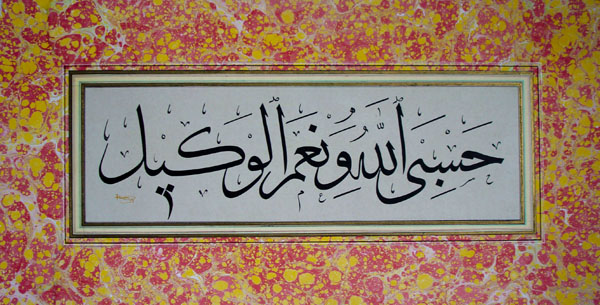 حَسْبِىَ ٱللَّهُ وَنِعْمَ ٱلْوَكِيلُ